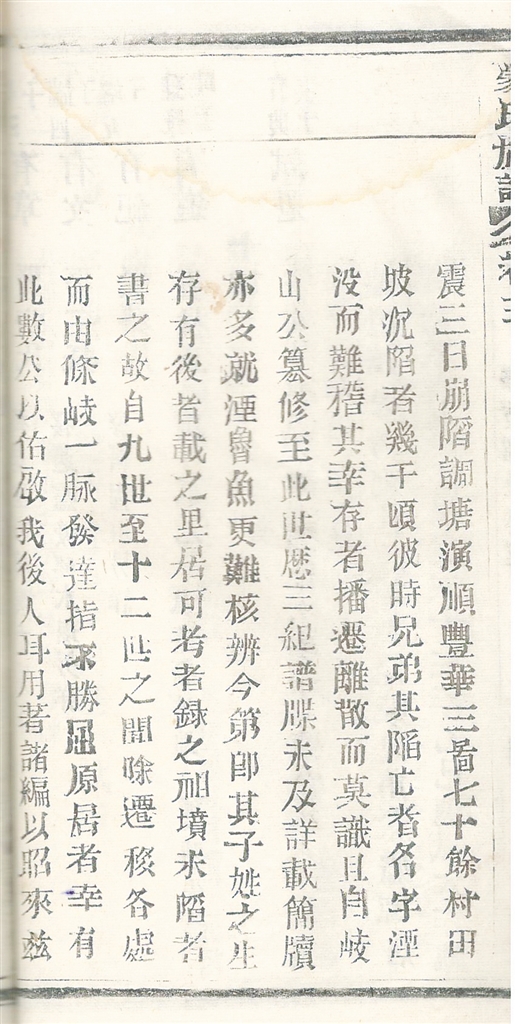 氏族譜 卷三
震三日崩陷調塘演順豐華三啚七十餘村田
坡沉陷者幾千頃彼時兄弟其陷亡者名字湮
没而難稽其幸存者播遷離散而莫識且自岐
山公纂修至此世歷三紀譜牒未及詳載簡牘
亦多就湮魯魚更難核辨今第即其子姓之生
存有後者載之里居可考者録之祖墳未陷者
書之故自九世至十二世之間除遷移各處
而由條岐一脉發達指不勝屈原居者幸有
此數公以佑啟我後人耳用著諸編以昭來兹